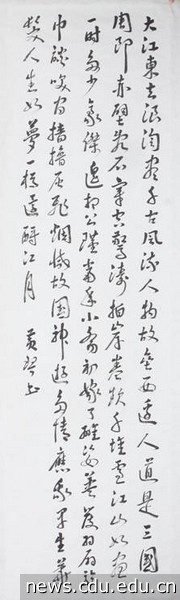 大江東去浪淘盡千古風流人物故壘西邊人道是三國
周郎赤壁亂石穿空驚濤拍岸卷起千堆雪江山如畫
一時多少豪傑遙想公瑾當年小喬初嫁了雄姿英發羽扇綸
巾談笑間檣櫓灰飛煙滅故國神遊多情應笑我早生華
髮人生如夢一樽還酹江月 黃 書
news.cdu.edu.cn